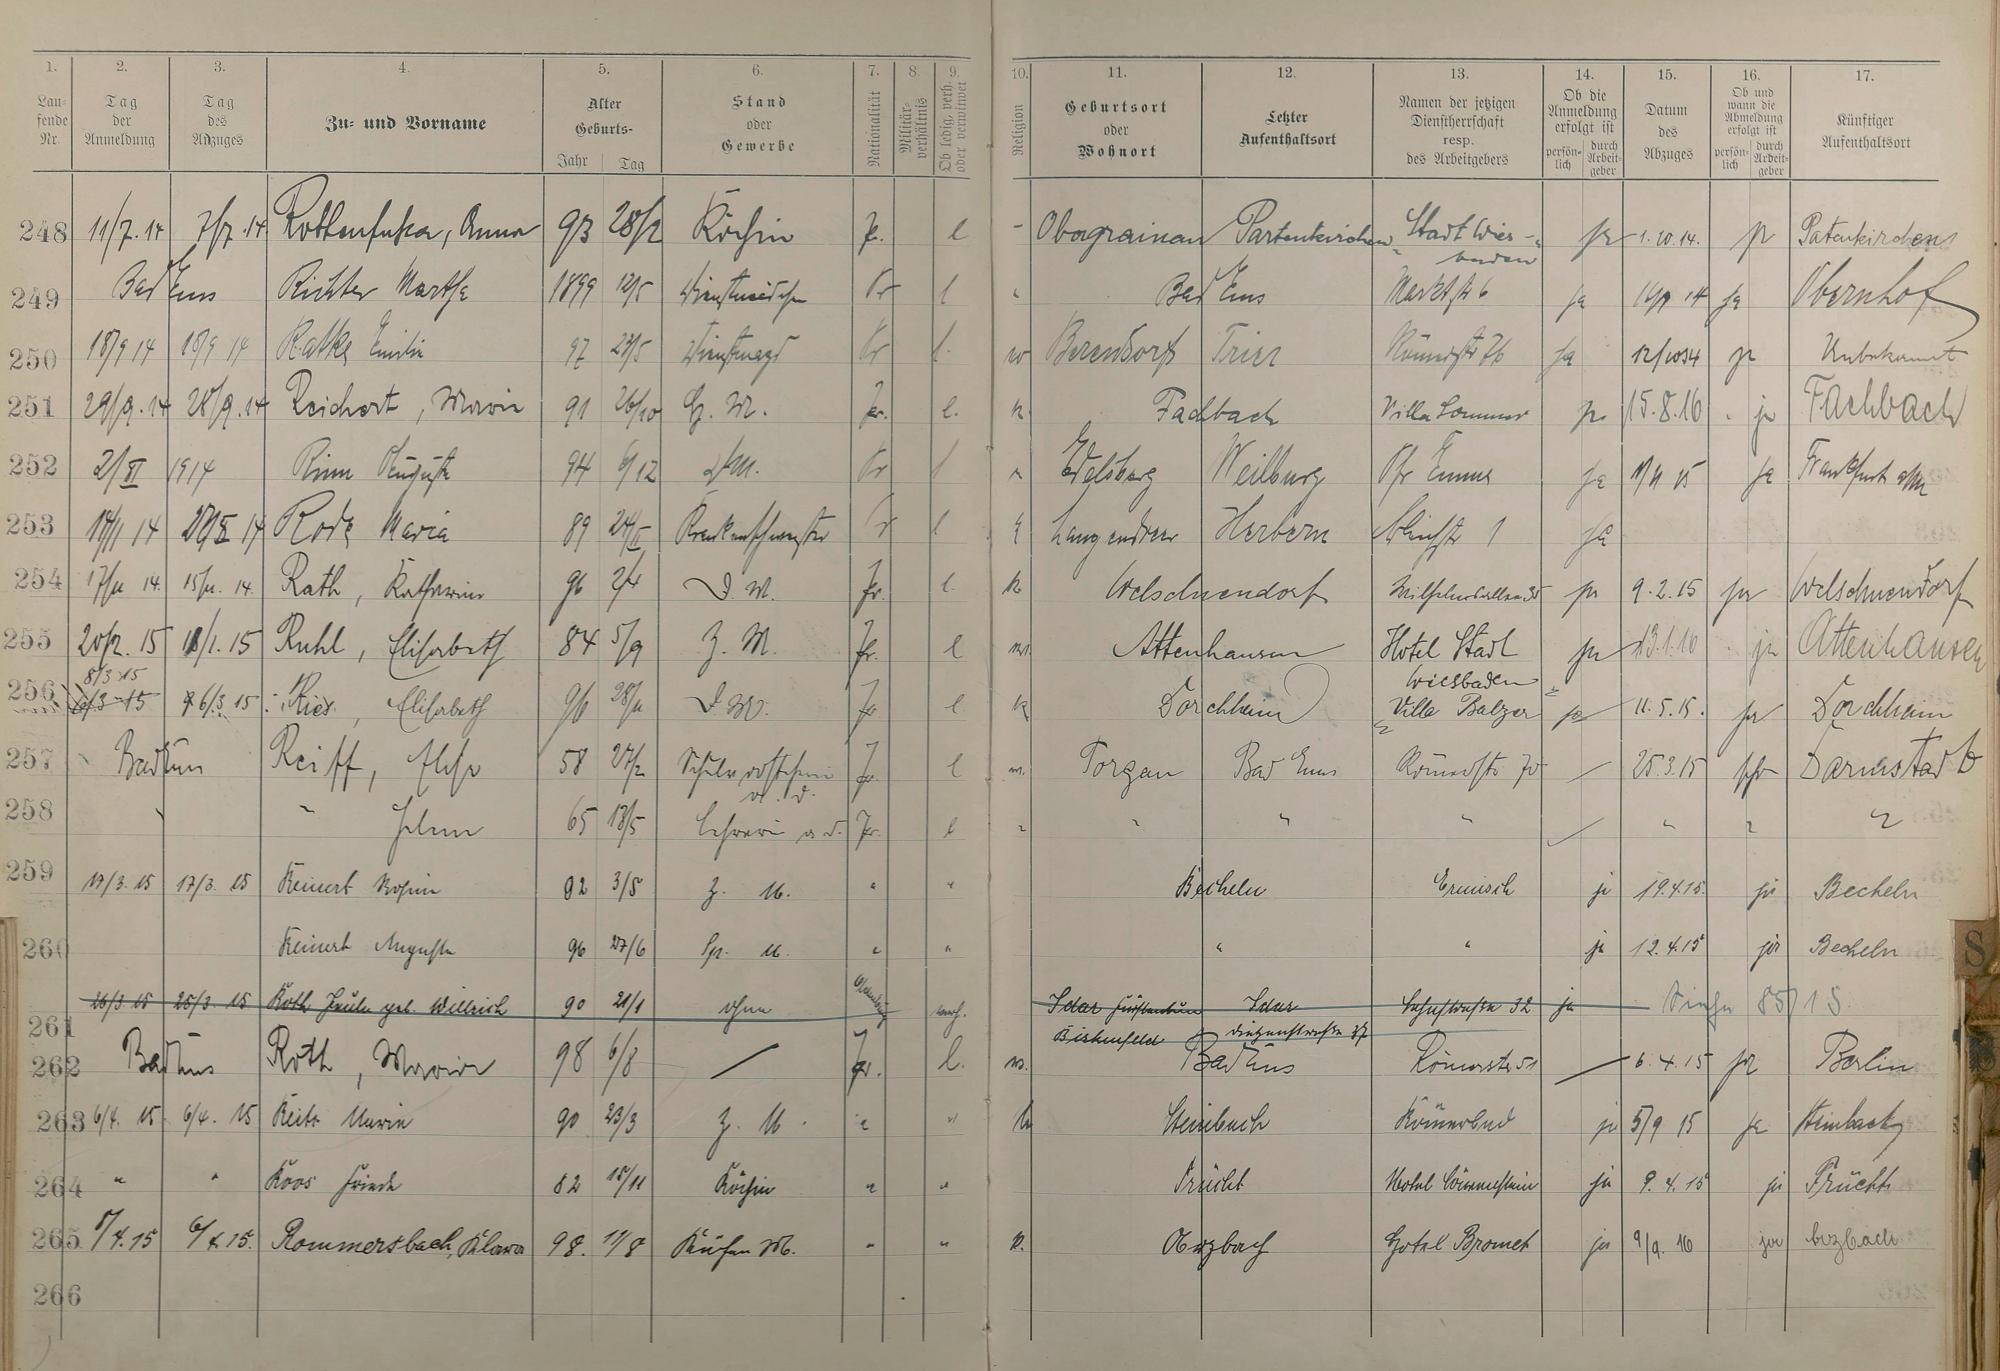 1. 2. 3. 4. 5. 6. 7. 8. 9. 10. 11. 12. 13. 14. 15. 16. 17.
Lau- fende Nr. Tag der Anmeldung Tag des Abzuges Zu- und Vorname Alter Geburts- Jahr Tag Stand oder Gewerbe Nationalität Militär- verhältnis Ob ledig, verh. oder verwitwet Religion Geburtsort oder Wohnort Letzter Aufenthaltsort Namen der jetzigen Dienstherrschaft resp. des Arbeitgebers Ob die Anmeldung erfolgt ist persön- lich durch Arbeit- geber Datum des Abzuges Ob und wann die Abmeldung erfolgt ist persön- lich durch Arbeit- geber Künftiger Aufenthaltsort
248 11/7. 14 7/7. 14 Anna 93 28/2 Köchin l Obergrainau Partenkirchen Stadt Wies- baden ja 1.10.14. ja Patenkirchen
249 Bad Ems Richter Martha 1899 12/5 Dienstmädchen Pr l Bad Ems Marktstr 6 ja 14 ja Obernhof
250 18/9 14 18/9 14 Ratke Emilie 97 23/5 Dienstmagd Pr l. Berendorf Trier Römerstr 76 ja ja Unbekannt
251 29/9. 14 28/9. 14 Reichert, Maria 91 26/10 H. M. Pr. l. k. Fachbach Villa Sommer ja 15.8.16 ja Fachbach
252 2/XI 1914 Rinn Auguste 94 6/12 M. Pr l Edelsberg Weilburg ja 15 ja Frankfurt a/M
253 14 14 Rode Maria 89 Krankenschwester Pr l Langendreer Herbern 1 ja
254 17/11 14. 15/11. 14. Rath, Katharina 96 2/4 D. M. Pr. l. k Welschneudorf Wilhelmsallee 35 ja 9.2.15 ja Welschneudorf
255 15 1/1. 15 Ruhl, Elisabeth 84 5/9 Z. M. Pr. l Attenhausen Hotel Stadt Wiesbaden ja 13.1.16 ja Attenhausen
256 8/3 15 6/3 15 6/3 15 Ries, Elisabeth 96 28/11 D. M. Pr l k Dorchheim Villa Balzer ja 11.5.15. ja Dorchheim
257 Bad Ems Reiff, Else 58 27/2 Schulvorsteherin a. D. Pr. l Torgau Bad Ems Römerstr 70 25.3.15 Darmstadt
258 " 65 13/5 Lehrerin a. D. Pr. l " " " " " "
259 17/3. 15 17/3. 15 Reinert Rosine 92 3/5 Z. M. " " Becheln Ermisch ja 19.4.15. ja Becheln
260 Reinert Auguste 96 27/6 Sp. M. " " " " ja 12.4.15 ja Becheln
261 26/3 15 25/3. 15 Roth Paula geb. Willrich 90 21/1 ohne Oldenburg verh. Idar Fürstentum Birkenfeld Idar 37 32 ja Siehe 85/15
262 Bad Ems Roth, Maria 98 6/8 Pr. l. Bad Ems Römerstr 51 6.4.15 ja Berlin
263 6/4. 15 6/4. 15 Reitz Maria 90 23/3 Z. M. " " k Steinbach Römerbad ja 5/9 15 ja Steinbach
264 " " Roos Frieda 82 15/11 Köchin " " Frücht Hotel ja 9.4.15 ja Frücht
265 7/4. 15 6/4 15. Rommersbach, Klara 98. 11/8 Küchen M. " " k. Hotel Bromet ja 9/9. 16 ja
266
S